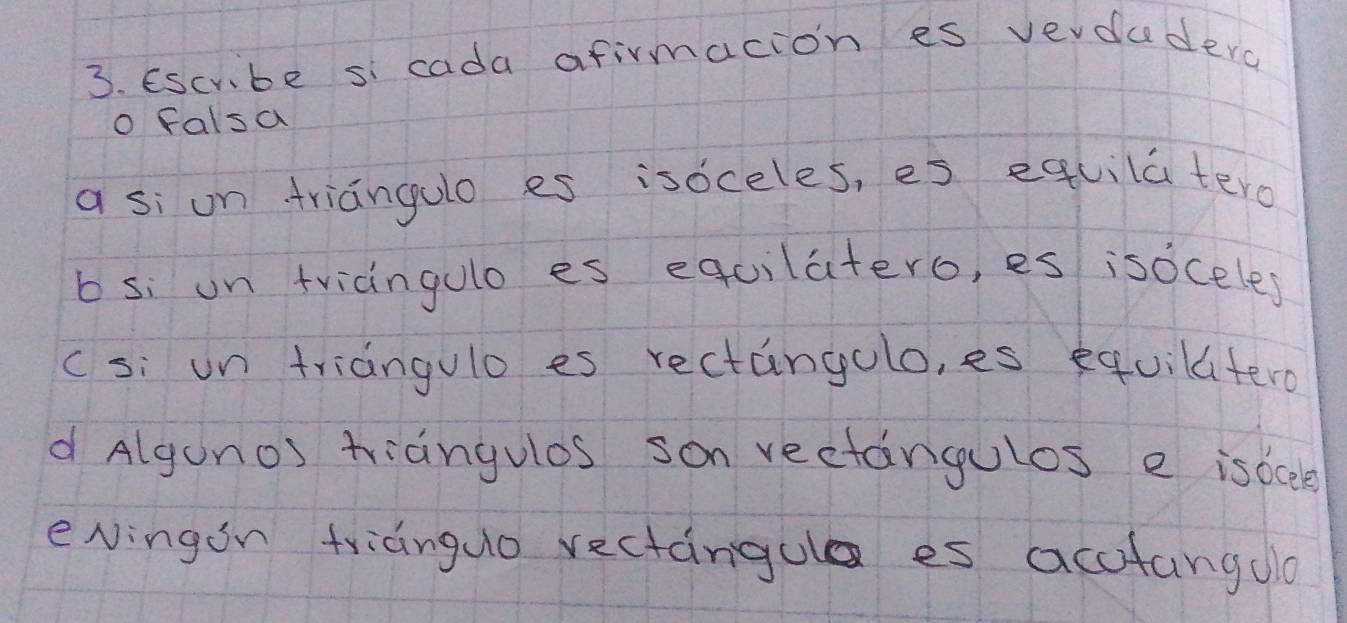 3. Escribe si cada afirmación es verdadera
o Falsa
a si un triángulo es isóceles, es equilátero
b si un triángulo es equilátero, es isóceles
c si un triángulo es rectángulo, es equilátero
d Algunos triángulos son rectángulos e isóceles
e Ningún triángulo rectángulo es acutangulo